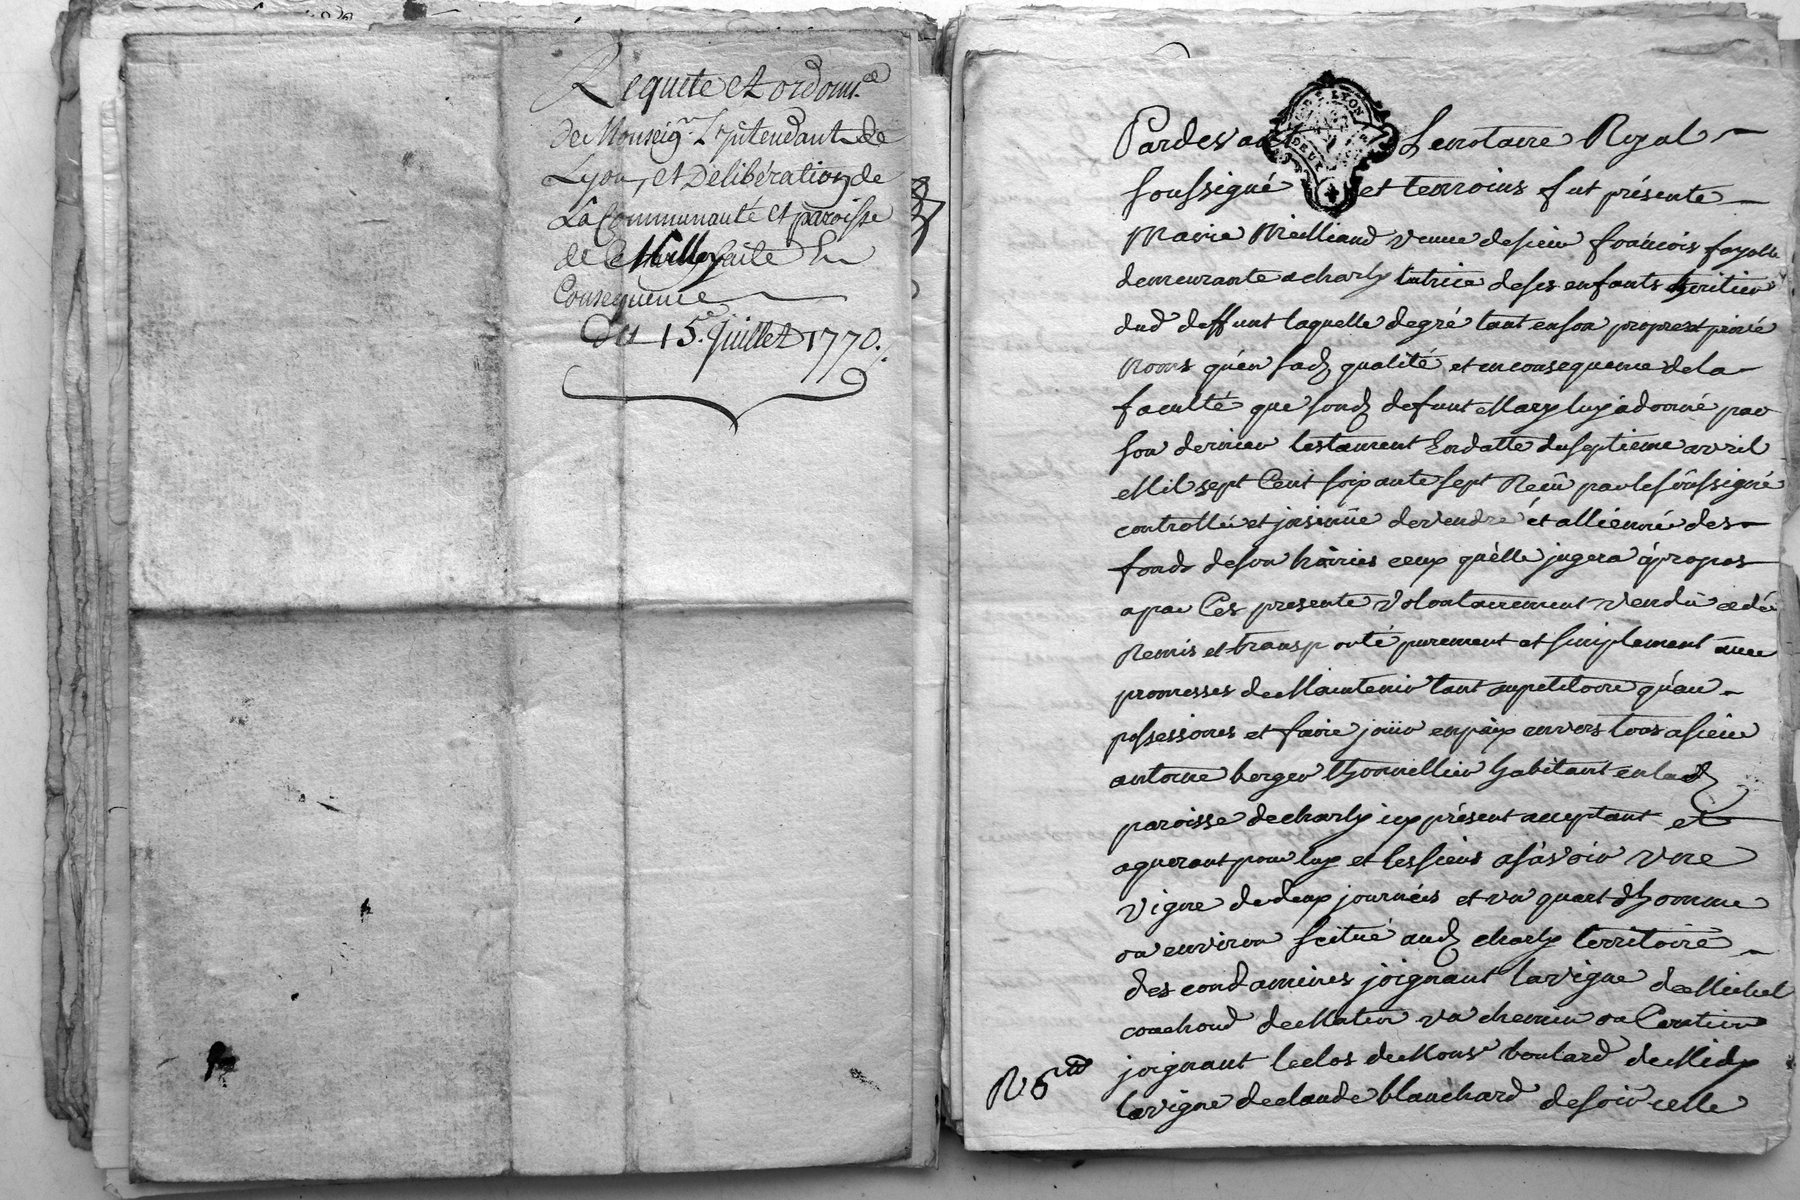 Requete et ordonn.ce
de Monseig.r L'jntendant de
Lyon, et Déliberation de
La Communauté et paroisse
de Charly faite En
Consequence
du 15.e Juillet 1770.
GEN. DE LYON
DEUX
Pardevant Le notaire Royal
soussigné et temoins fut présente
Marie Meilliand veuve de sieur francois fayolle
demeurante a charly tutrice de ses enfants heritiers
dud deffunt laquelle de gré tant en son propre et privé
Noms qu'en sad qualité et en consequence de la
faculté que sond defunt Mary luy à donné par
son dernier testament En datte du septieme avril
Mil sept Cent soixante sept Recû par le soussigné
controllé et jnsinüé de vendre et allienné des
fonds de son hoiries ceux qu'elle jugera àpropos
a par Ces presente volontairement vendû cedé
Remis et transporté purement et simplement avec
promesses de Maintenir tant au petitoire qu'au
possessoires et faire joüir en paix envers tous a sieur
antoine berger thonnellier habitant en lad
paroisse de charly icy présent acceptant et
aquerant pour luy et les siens asavoir vne
vigne de deux journées et vn quart d'homme
ou environ scitué aud charly territoire
des condamines joignant la vigne de Michel
couchoud de Matin vn chemin ou Centier
joignant le clos de Mons.r boulard de Midy
la vigne de claude blanchard de soir celle